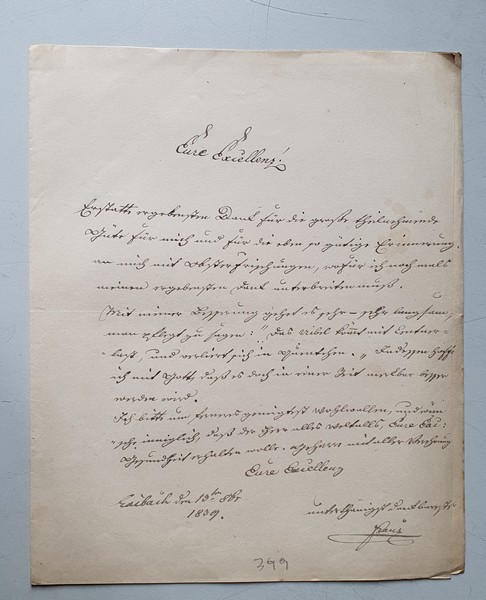 Eure Excellenz!
Erstatte ergebensten Dank für die große theilnehmende
Güte für mich und für die eben so gütige Erinnerung
an mich mit Obsterfrischungen, wofür ich nochmals
meinen ergebensten Dank unterbreiten muß.
Mit meiner Besserung gehet es sehr – sehr langsam,
man pflegt zu sagen: "Das Übel kömt mit Centner-
last, und verliert sich in Quentchen." Indessen hoffe
ich mit Gott, daß es doch in einer Zeit merkbar besser
werden wird.
Ich bitte um ferneres geneigtest Wohlwollen, und wün
sche inniglich daß der Herr alles Weltalls, Eure Exc:
Gesundheit erhalten wolle. mit aller Verehrung
Eure Excellenz
Laibach den 13ten 8br
1839.
unterthänigst dankbarster
399